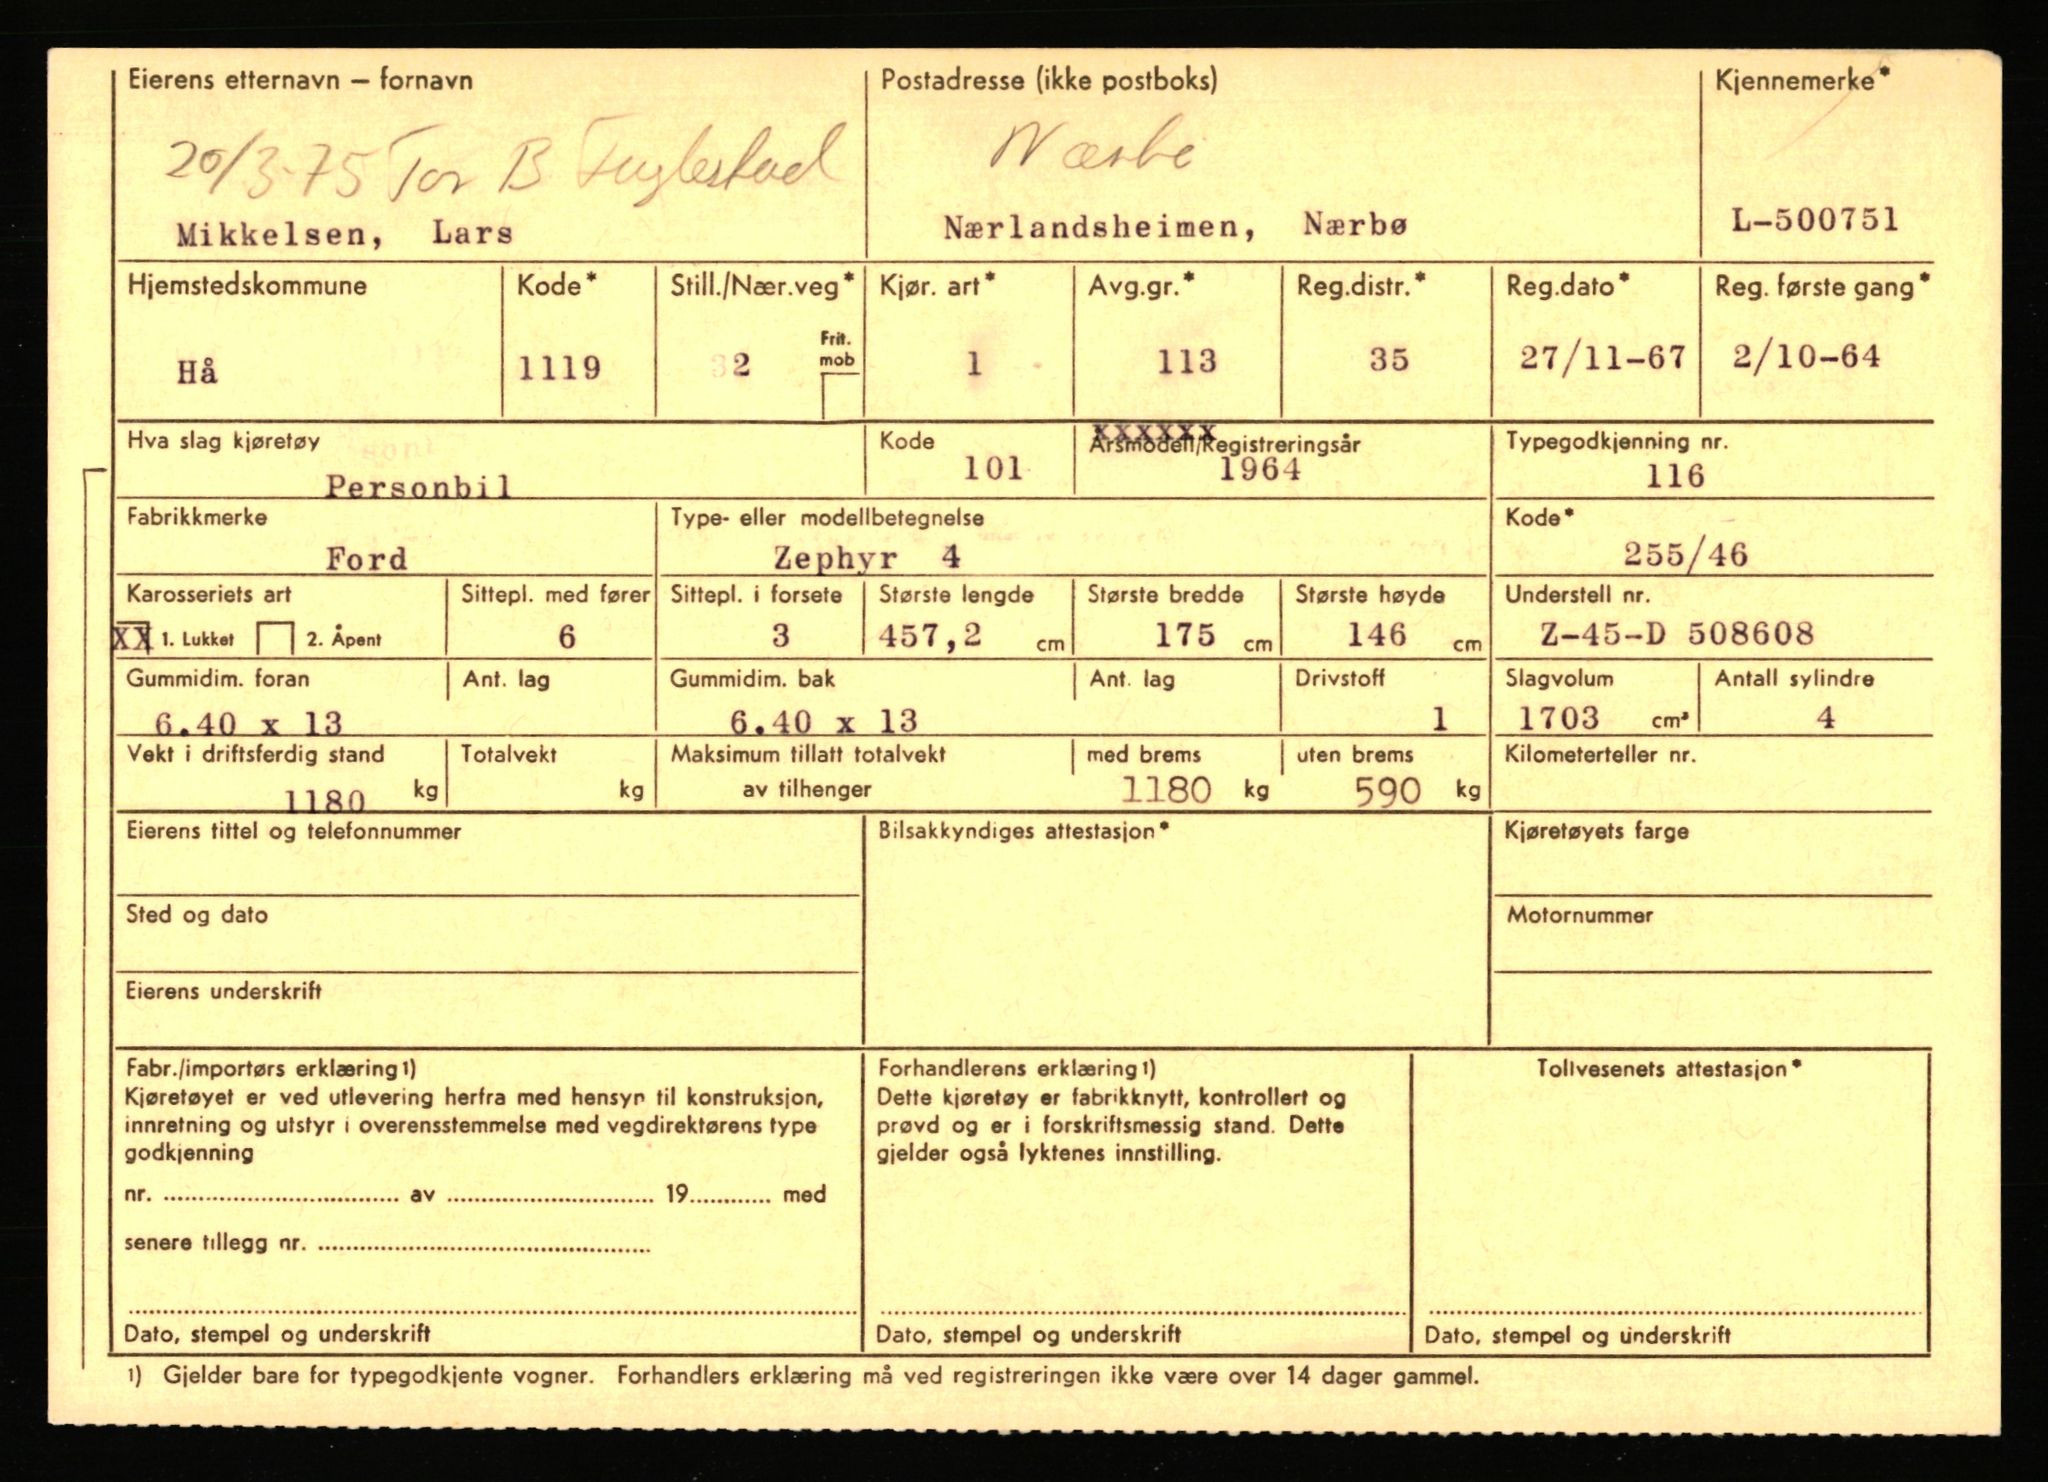 Eierens etternavn — fornavn Postadresse (ikke postboks) Kjennemerke*
20/3-75 Tor B Fuglestad Nærbø
Mikkelsen, Lars Nærlandsheimen, Nærbø L-500751
Hjemstedskommune Kode* Still./Nær.veg* Kjør. art* Avg.gr.* Reg.distr.* Reg.dato* Reg. første gang*
Frit. mob
Hå 1119 32 1 113 35 27/11-67 2/10-64
Hva slag kjøretøy Kode Årsmodell/Registreringsår Typegodkjenning nr.
xxxxxx
Personbil 101 1964 116
Fabrikkmerke Type- eller modellbetegnelse Kode*
Ford Zephyr 4 255/46
Karosseriets art Sittepl. med fører Sittepl. i forsete Største lengde Største bredde Største høyde Understell nr.
XX 1. Lukket 2. Åpent 6 3 457,2 cm 175 cm 146 cm Z-45-D 508608
Gummidim. foran Ant. lag Gummidim. bak Ant. lag Drivstoff Slagvolum Antall sylindre
6.40 x 13 6.40 x 13 1 1703 cm³ 4
Vekt i driftsferdig stand Totalvekt Maksimum tillatt totalvekt med brems uten brems Kilometerteller nr.
1180 kg kg av tilhenger 1180 kg 590 kg
Eierens tittel og telefonnummer Bilsakkyndiges attestasjon* Kjøretøyets farge
Sted og dato Motornummer
Eierens underskrift
Fabr./importørs erklæring 1) Forhandlerens erklæring 1) Tollvesenets attestasjon*
Kjøretøyet er ved utlevering herfra med hensyn til konstruksjon, Dette kjøretøy er fabrikknytt, kontrollert og
innretning og utstyr i overensstemmelse med vegdirektørens type prøvd og er i forskriftsmessig stand. Dette
godkjenning gjelder også lyktenes innstilling.
nr. .............................. av .............................. 19........... med
senere tillegg nr. ..............................
Dato, stempel og underskrift Dato, stempel og underskrift Dato, stempel og underskrift
1) Gjelder bare for typegodkjente vogner. Forhandlers erklæring må ved registreringen ikke være over 14 dager gammel.